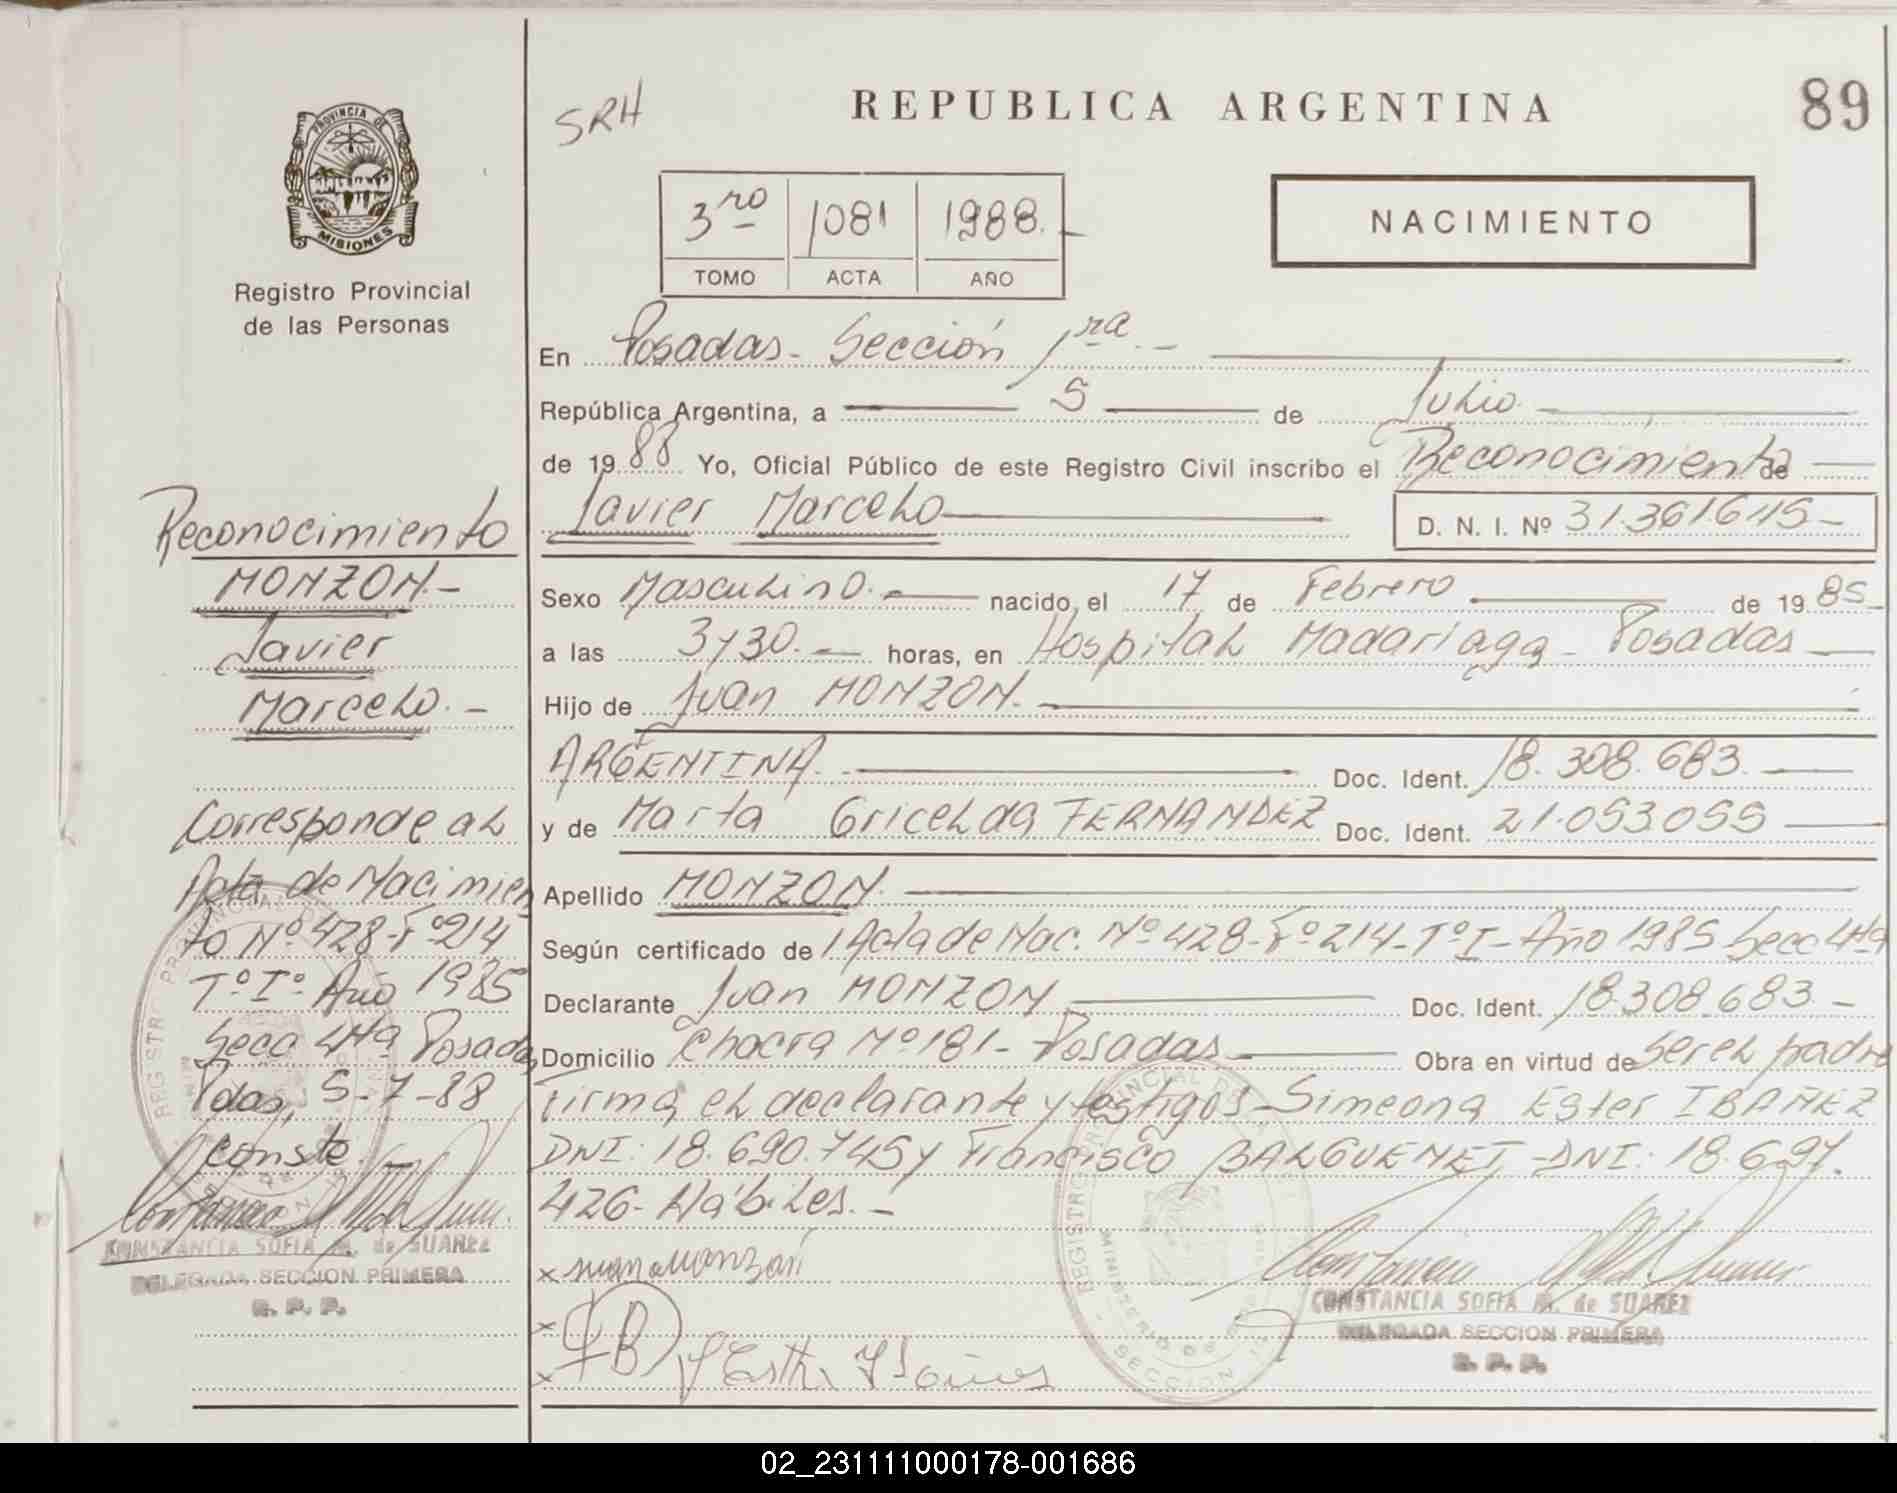 PROVINCIA DE
MISIONES
Registro Provincial
de las Personas
Reconocimiento
MONZON.-
Javier
Marcelo.-
Corresponde al
Acta de Nacimien
to Nº 428-Fº214
Tº.Iº. Año 1985
Secc 4ta Posadas
Pdas, 5-7-88
conste.
CONSTANCIA SOFIA M. de SUAREZ
DELEGADA SECCION PRIMERA
R. P. P.
SRH
REPUBLICA ARGENTINA
89
3ro 1081 1988.-
TOMO ACTA AÑO
NACIMIENTO
En Posadas- Sección 1ra.-
República Argentina, a 5 de Julio.
de 1988 Yo, Oficial Público de este Registro Civil inscribo el Reconocimiento de
Javier Marcelo D. N. I. Nº 31.361.615-
Sexo Masculino.- nacido, el 17 de Febrero de 1985
a las 3y30.- horas, en Hospital Madariaga - Posadas
Hijo de Juan MONZON.
ARGENTINA. Doc. Ident. 18.308.683.
y de Marta Gricelda FERNANDEZ Doc. Ident. 21.053.055
Apellido MONZON.
Según certificado de Acta de Nac. Nº 428-Fº 214-Tº I-Año 1985 Secc 4ta
Declarante Juan MONZON Doc. Ident. 18.308.683.-
Domicilio Chacra Nº 181- Posadas Obra en virtud de ser el padre
Firma, el declarante y testigos-Simeona Ester IBAÑEZ
DNI: 18.690.745 y Francisco BALGUENET-DNI: 18.697.
426- Hábiles.-
x Juan Monzon
x
x
CONSTANCIA SOFIA M. de SUAREZ
DELEGADA SECCION PRIMERA
R. P. P.
02_231111000178-001686